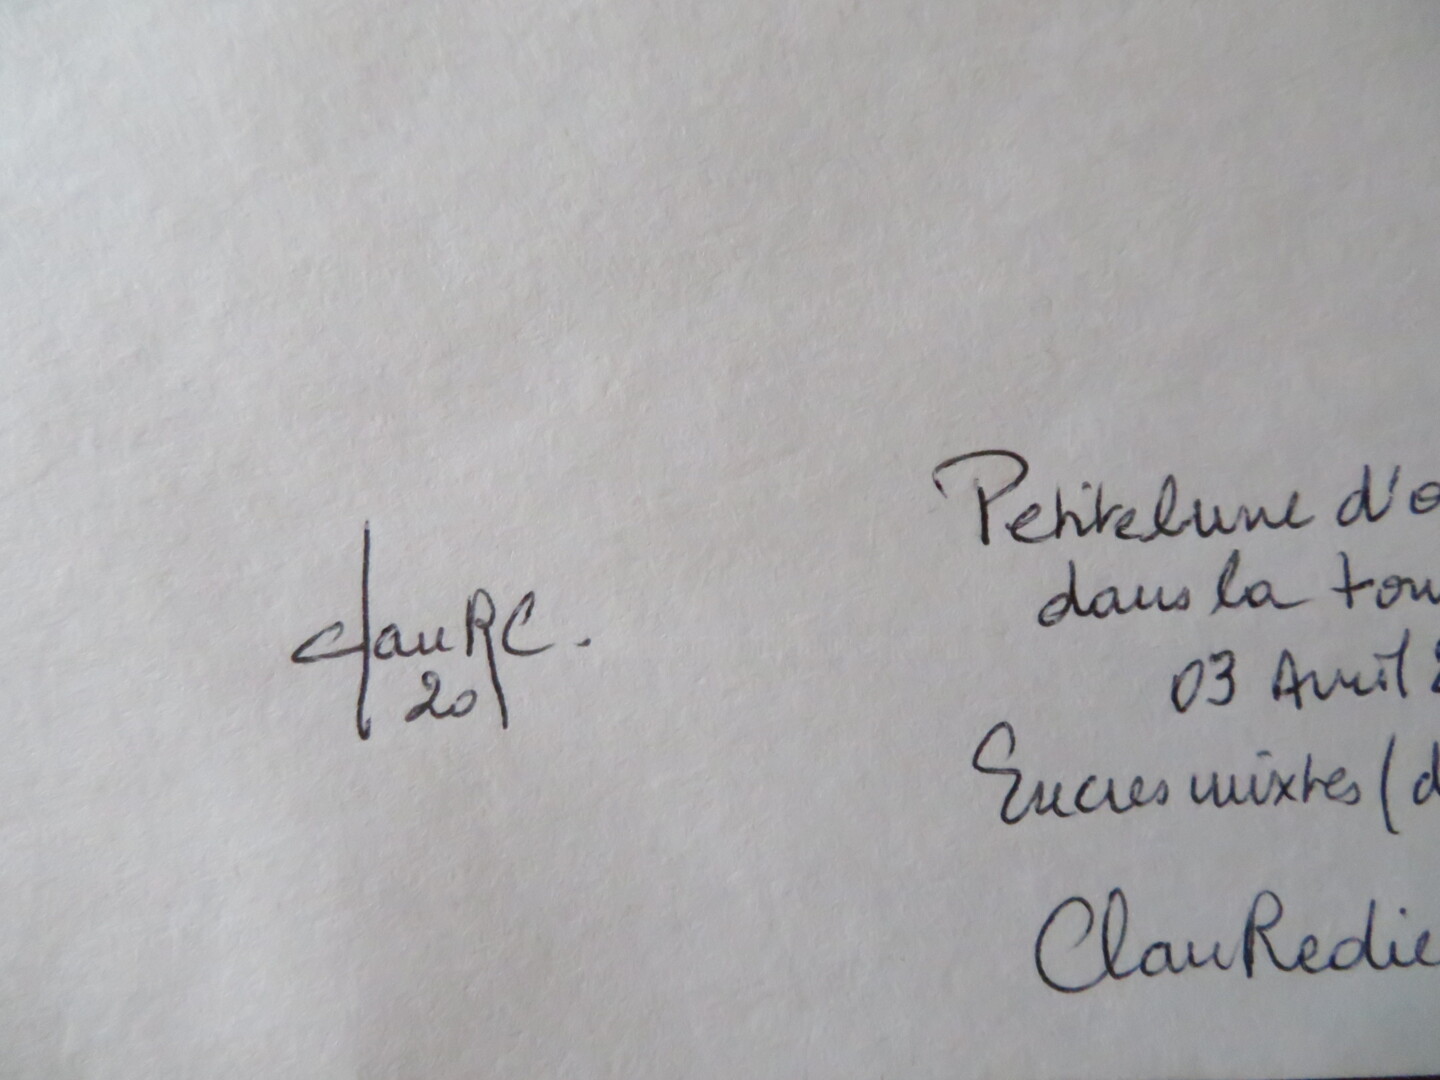 ClauRC.
20
Petite lune d'o
dans la tou
03 Avril 2
Encres mixtes (d
ClauRedie